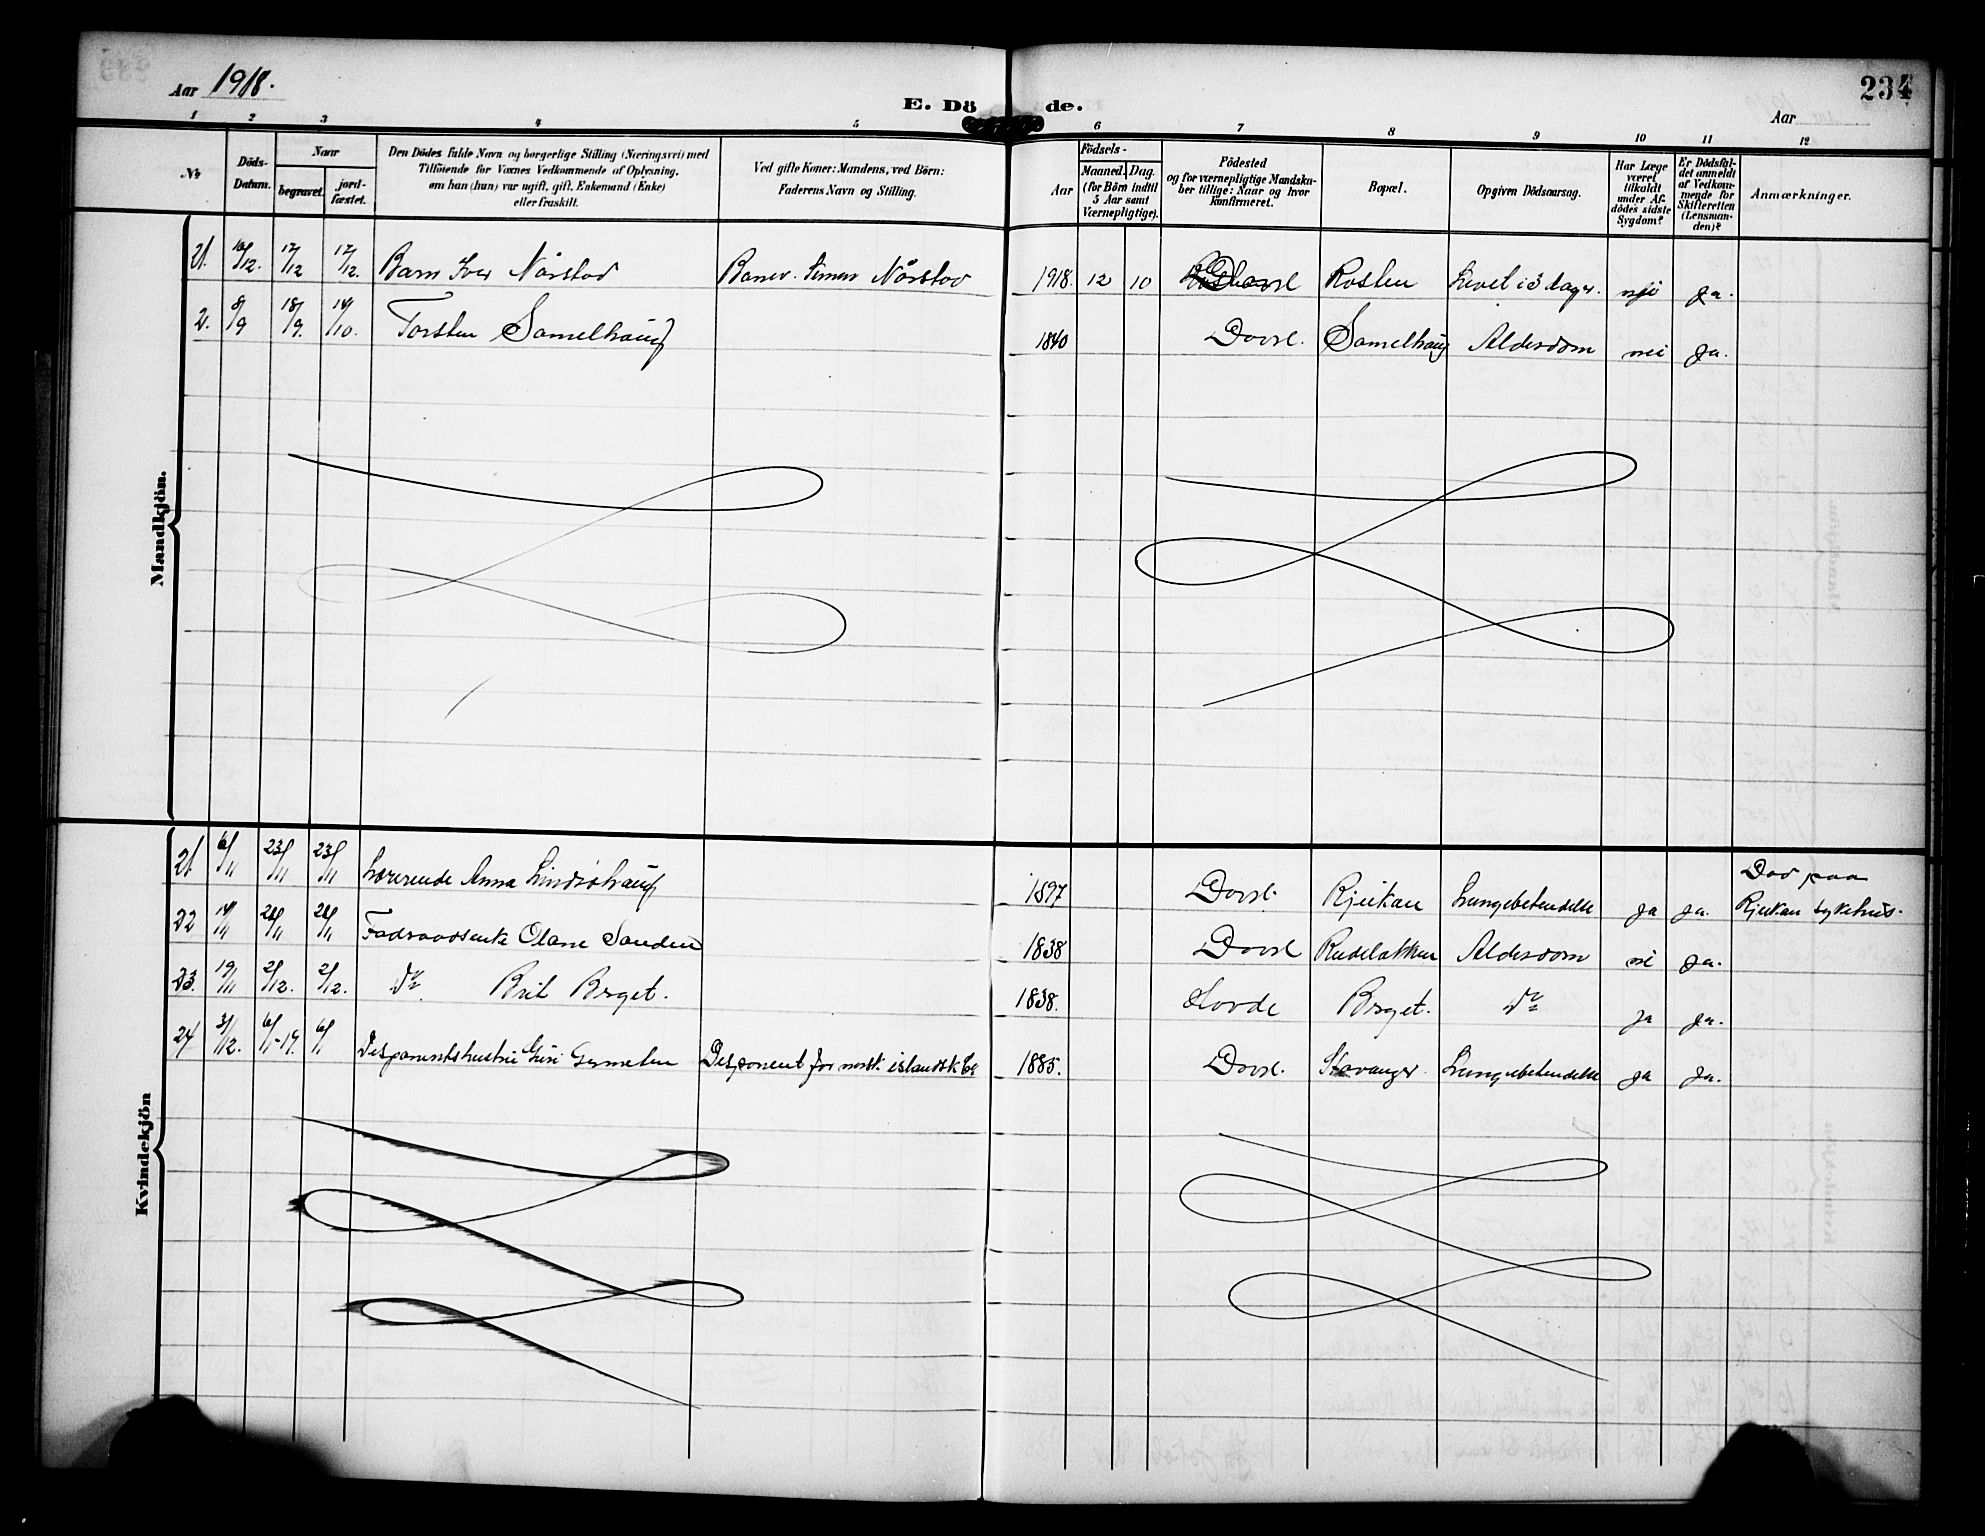 Aar 1918.
E. Dö de.
234
Aar
1 2 3 4 5 6 7 8 9 10 11 12
No
Döds-
Datum.
Naar
begravet.
jord-
fæstet.
Den Dödes fulde Navn og borgerlige Stilling (Næringsvei) med
Tilföiende for Voxnes Vedkommende af Oplysning.
om han (hun) var ugift, gift, Enkemand (Enke)
eller fraskilt.
Ved gifte Koner: Mandens, ved Börn:
Faderens Navn og Stilling.
Födsels-
Aar
Maaned. Dag.
(for Börn indtil
5 Aar samt
Værnepligtige).
Födested
og for værnepligtige Mandska-
ber tillige: Naar og hvor
Konfirmeret.
Bopæl.
Opgiven Dödsaarsag.
Har Læge
været
tilkaldt
under Af-
dödes sidste
Sygdom?
Er Dödsfal-
det anmeldt
af Vedkom-
mende for
Skifteretten
(Lensman-
den)?
Anmærkninger.
Mandkjön.
21. 10/12. 17/12 17/12. Barn Iver Nörstad 1918. 12 10 Rosten Levet i 3 dager. nei ja.
2. 8/9 18/9. 14/10. Torsten Samelhaug 1840 Dovre. Samelhaug Alderdom nei ja.
Kvindekjön
21 6/11 23/11 23/11 Lærerinde Anna Lindsøhaug 1897 Dovre. Rjukan Lungebetendelse ja ja. Død paa
Rjukan sykehus.
22 14/11 24/11 24/11 Fadraadsenke Olane Sanden 1838 Dovre Alderdom nei ja.
23. 19/11 2/12. 2/12. Do Brit Berget. 1838. Horde Berget. Do ja ja.
24 31/12. 6/1-19. 6/1 Disponentshustru Guri Disponent for norsk islandsk Co 1885. Dovre. Stavanger. Lungebetendelse ja ja.